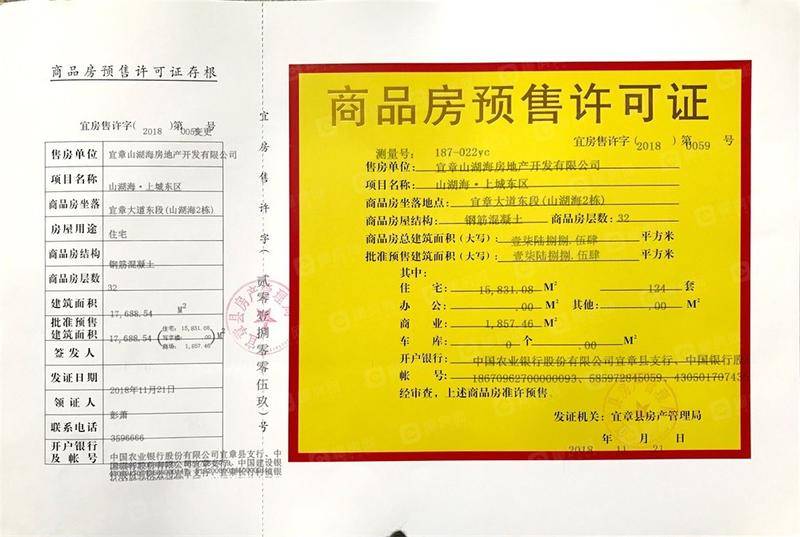 商品房预售许可证存根
宜房售许字(2018)第005变更号
售房单位 宜章山湖海房地产开发有限公司
项目名称 山湖海·上城东区
商品房坐落 宜章大道东段(山湖海2栋)
房屋用途 住宅
商品房结构 钢筋混凝土
商品房层数 32
建筑面积 17,688.54 M²
批准预售
建筑面积 17,688.54 (住宅:15,831.08 写字楼:.00 商场:1,857.46) M²
签发人
发证日期 2018年11月21日
领证人 彭萧
联系电话 3596666
开户银行
及帐号 中国农业银行股份有限公司宜章县支行、中国建设银
宜房售许字(贰零壹捌零零伍玖)号
商品房预售许可证
宜房售许字(2018)第0059号
测量号: 187-022yc
售房单位: 宜章山湖海房地产开发有限公司
项目名称: 山湖海·上城东区
商品房坐落地点: 宜章大道东段(山湖海2栋)
商品房屋结构: 钢筋混凝土 商品房层数: 32
商品房总建筑面积(大写): 壹柒陆捌捌.伍肆 平方米
批准预售建筑面积(大写): 壹柒陆捌捌.伍肆 平方米
其中:
住宅: 15,831.08 M² 124 套
办公: .00 M² 其他: .00 M²
商业: 1,857.46 M²
车库: 0 个 .00 M²
开户银行: 中国农业银行股份有限公司宜章县支行、中国银行股
帐号: 18670962700000093、585972845059、430501707436
经审查,上述商品房准许预售。
发证机关: 宜章县房产管理局
2018年11月21日